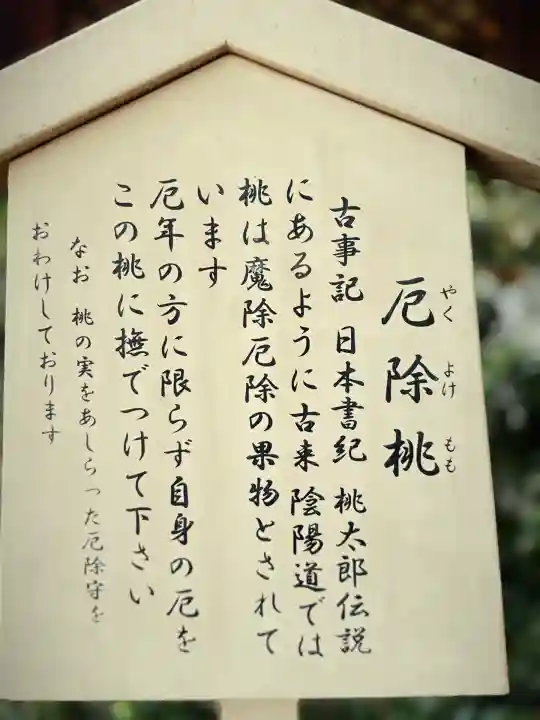 厄除桃
やく よけ もも
古事記 日本書紀 桃太郎伝説
にあるように古来 陰陽道では
桃は魔除厄除の果物とされて
います
厄年の方に限らず自身の厄を
この桃に撫でつけて下さい
なお 桃の実をあしらった厄除守を
おわけしております